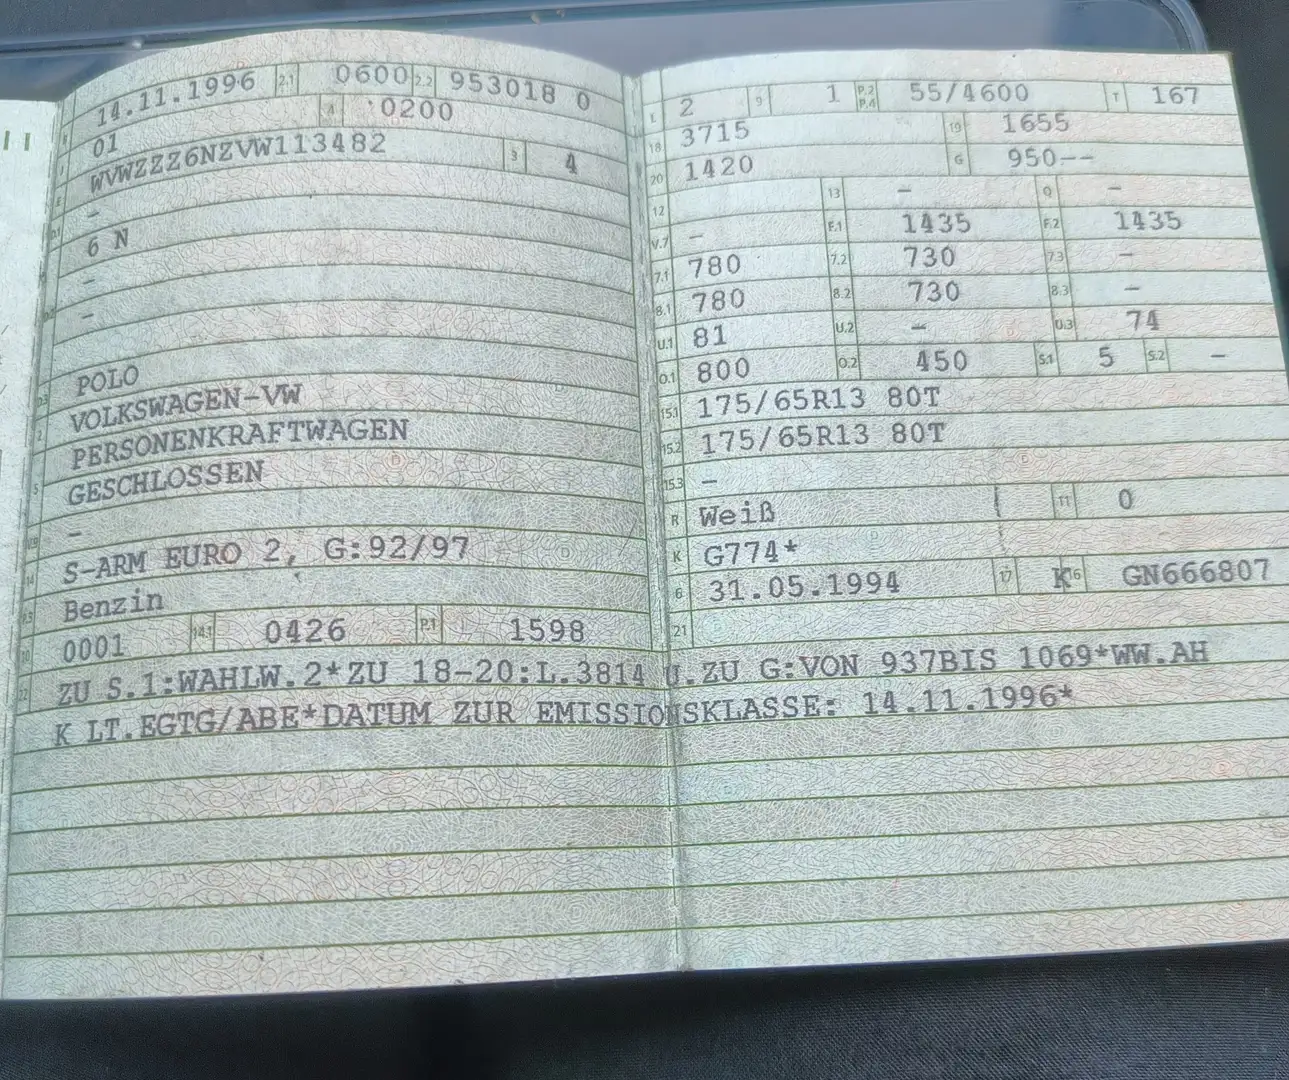 14.11.1996 2.1 0600 2.2 953018 0
01 4 0200
WVWZZZ6NZVW113482 3 4
-
6 N
-
-
POLO
VOLKSWAGEN-VW
PERSONENKRAFTWAGEN
GESCHLOSSEN
-
S-ARM EURO 2, G:92/97
Benzin
0001 14.1 0426 P.1 1598
L 2 9 1 P.2 P.4 55/4600 T 167
18 3715 19 1655
20 1420 G 950--
12 13 - Q -
V.7 - F.1 1435 F.2 1435
7.1 780 7.2 730 7.3 -
8.1 780 8.2 730 8.3 -
U.1 81 U.2 - U.3 74
O.1 800 O.2 450 S.1 5 S.2 -
15.1 175/65R13 80T
15.2 175/65R13 80T
15.3 -
R Weiß 11 0
K G774*
6 31.05.1994 17 K 16 GN666807
21
22 ZU S.1:WAHLW.2*ZU 18-20:L.3814 U.ZU G:VON 937BIS 1069*WW.AH
K LT.EGTG/ABE*DATUM ZUR EMISSIONSKLASSE: 14.11.1996*